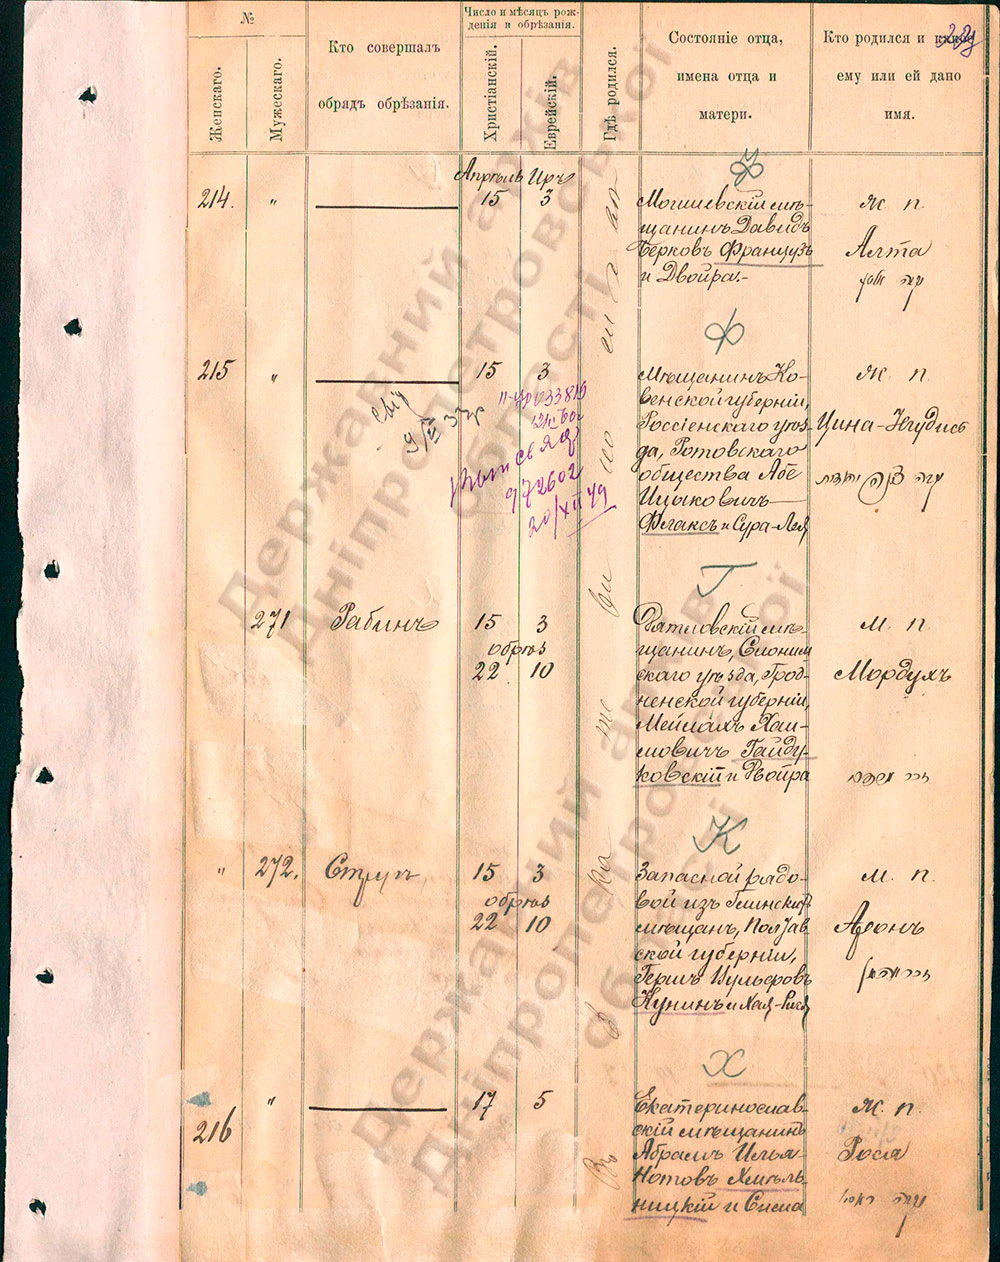 №
Женскаго.
Мужескаго.
Кто совершалъ
обрядъ обрѣзанія.
Число и мѣсяцъ рож-
денія и обрѣзанія.
Христіанскій.
Еврейскій.
Гдѣ родился.
Состояніе отца,
имена отца и
матери.
Кто родился и какое
ему или ей дано
имя.
Апрѣль Иръ
Ф
214. " 15 3
Могилевскій мѣ-
щанинъ Давидъ
Берковъ Французъ
и Двойра.-
Ж. п.
Алта
Ф
215 " 15 3
Мѣщанинъ Ко-
венской губерніи,
Россіенскаго уѣз-
да, Ротовскаго
общества Абе
Ицыковичъ
Флаксъ и Сура-Лея
Ж. п.
Цина-Нгудисъ
972602
20/XII 49
Г
271 Рабинъ 15 3
обрѣз
22 10
Дятловскій мѣ-
щанинъ, Слоним
скаго уѣзда, Грод-
ненской губерніи,
Мейлахъ Хаи-
мовичъ Гайду-
ковскій и Двойра
М. п.
Мордухъ
К
" 272. 15 3
обрѣз
22 10
Запасной рядо-
вой изъ Глинскихъ
мѣщанъ, Полтав
ской губерніи,
Гершъ Вульфовъ
Кунинъ и Хая-Рися
М. п.
Аронъ
Х
216 " 17 5
Екатеринослав-
скій мѣщанинъ
Абрамъ Илья
Нотовъ Хмѣль-
ницкій и Сима
Ж. п.
Рося
Въ Екатеринославѣ
Державний архів
Дніпропетровської
області
Державний архів
Дніпропетровської
області